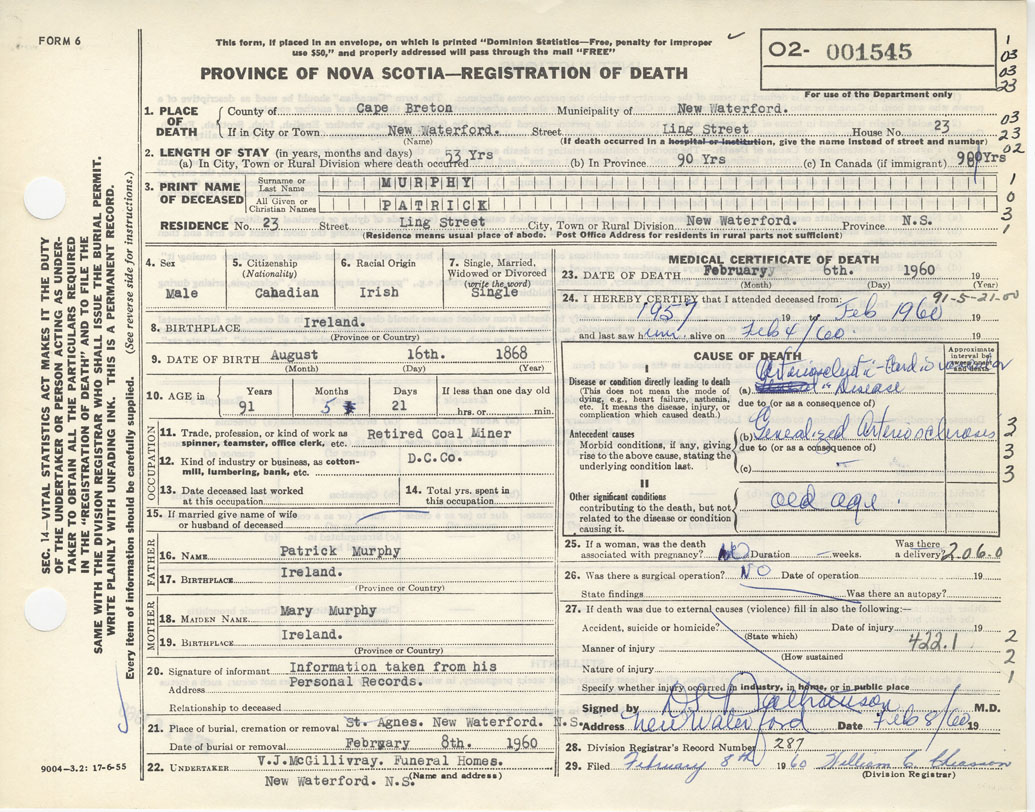 FORM 6
This form, if placed in an envelope, on which is printed "Dominion Statistics—Free, penalty for improper
use $50," and properly addressed will pass through the mail "FREE"
PROVINCE OF NOVA SCOTIA—REGISTRATION OF DEATH
O2- 001545
For use of the Department only
1
03
03
23
1. PLACE OF DEATH
County of Cape Breton Municipality of New Waterford.
If in City or Town New Waterford. Street Ling Street House No. 23
(Name) (If death occurred in a hospital or institution, give the name instead of street and number)
03
23
02
2. LENGTH OF STAY (in years, months and days)
(a) In City, Town or Rural Division where death occurred 53 Yrs (b) In Province 90 Yrs (c) In Canada (if immigrant) 90 Yrs
3. PRINT NAME OF DECEASED
Surname or Last Name MURPHY
All Given or Christian Names PATRICK
1
0
3
1
RESIDENCE No. 23 Street Ling Street City, Town or Rural Division New Waterford. Province N.S.
(Residence means usual place of abode. Post Office Address for residents in rural parts not sufficient)
SEC. 14—VITAL STATISTICS ACT MAKES IT THE DUTY
OF THE UNDERTAKER OR PERSON ACTING AS UNDER-
TAKER TO OBTAIN ALL THE PARTICULARS REQUIRED
IN THE "REGISTRATION OF DEATH" AND FILE THE
SAME WITH THE DIVISION REGISTRAR WHO SHALL ISSUE THE BURIAL PERMIT.
WRITE PLAINLY WITH UNFADING INK. THIS IS A PERMANENT RECORD.
Every item of information should be carefully supplied. (See reverse side for instructions.)
4. Sex
Male
5. Citizenship
(Nationality)
Cahadian
6. Racial Origin
Irish
7. Single, Married,
Widowed or Divorced
(write the word)
Single
8. BIRTHPLACE Ireland.
(Province or Country)
9. DATE OF BIRTH August 16th. 1868
(Month) (Day) (Year)
10. AGE in
Years
91
Months
5
Days
21
If less than one day old
hrs. or min.
OCCUPATION
11. Trade, profession, or kind of work as Retired Coal Miner
spinner, teamster, office clerk, etc.
12. Kind of industry or business, as cotton- D.C.Co.
mill, lumbering, bank, etc.
13. Date deceased last worked
at this occupation.
14. Total yrs. spent in
this occupation
15. If married give name of wife
or husband of deceased
FATHER
16. NAME Patrick Murphy
17. BIRTHPLACE Ireland.
(Province or Country)
MOTHER
18. MAIDEN NAME Mary Murphy
19. BIRTHPLACE Ireland.
(Province or Country)
20. Signature of informant Information taken from his
Address Personal Records.
Relationship to deceased
21. Place of burial, cremation or removal St. Agnes. New Waterford. N.S.
Date of burial or removal Febrary 8th. 1960
22. UNDERTAKER V.J.McGillivray. Funeral Homes.
New Waterford. N.S. (Name and address)
9004-3.2: 17-6-55
MEDICAL CERTIFICATE OF DEATH
23. DATE OF DEATH February 6th. 1960 19
(Month) (Day) (Year)
24. I HEREBY CERTIFY that I attended deceased from: 91-5-21-00
1957 19 to Feb 1960 19
and last saw him alive on Feb 4/60 19
CAUSE OF DEATH
Approximate
interval between
and death
I
Disease or condition directly leading to death
(This does not mean the mode of
dying, e.g., heart failure, asthenia,
etc. It means the disease, injury, or
complication which caused death.)
(a) Disease
due to (or as a consequence of)
Antecedent causes
Morbid conditions, if any, giving
rise to the above cause, stating the
underlying condition last.
(b) Generalized Arteriosclerosis
due to (or as a consequence of)
(c)
3
3
3
II
Other significant conditions
contributing to the death, but not
related to the disease or condition
causing it.
old age.
25. If a woman, was the death
associated with pregnancy? NO Duration weeks. Was there
a delivery? 2.0.6.0
26. Was there a surgical operation? NO Date of operation 19
State findings Was there an autopsy?
27. If death was due to external causes (violence) fill in also the following:—
Accident, suicide or homicide? Date of injury 19
(State which)
Manner of injury 422.1
(How sustained
Nature of injury
Specify whether injury occurred in industry, in home, or in public place
2
2
1
Signed by M.D.
Address New Waterford Date Feb 8/60 19
28. Division Registrar's Record Number 287
29. Filed February 8th 1960 William C. Chiasson
(Division Registrar)